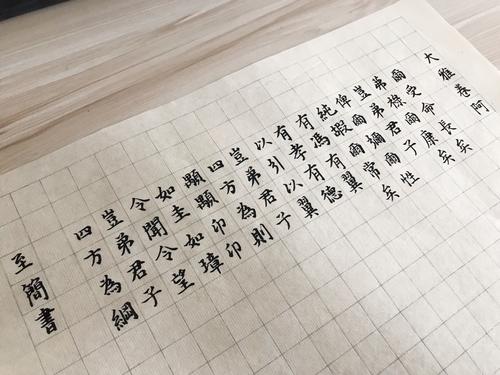 大雅卷阿
爾受命長矣
茀祿爾康矣
豈弟君子
俾爾彌爾性
純嘏爾常矣
有馮有翼
有孝有德
以引以翼
豈弟君子
四方為則
顒顒卬卬
如圭如璋
令聞令望
豈弟君子
四方為綱
至簡書